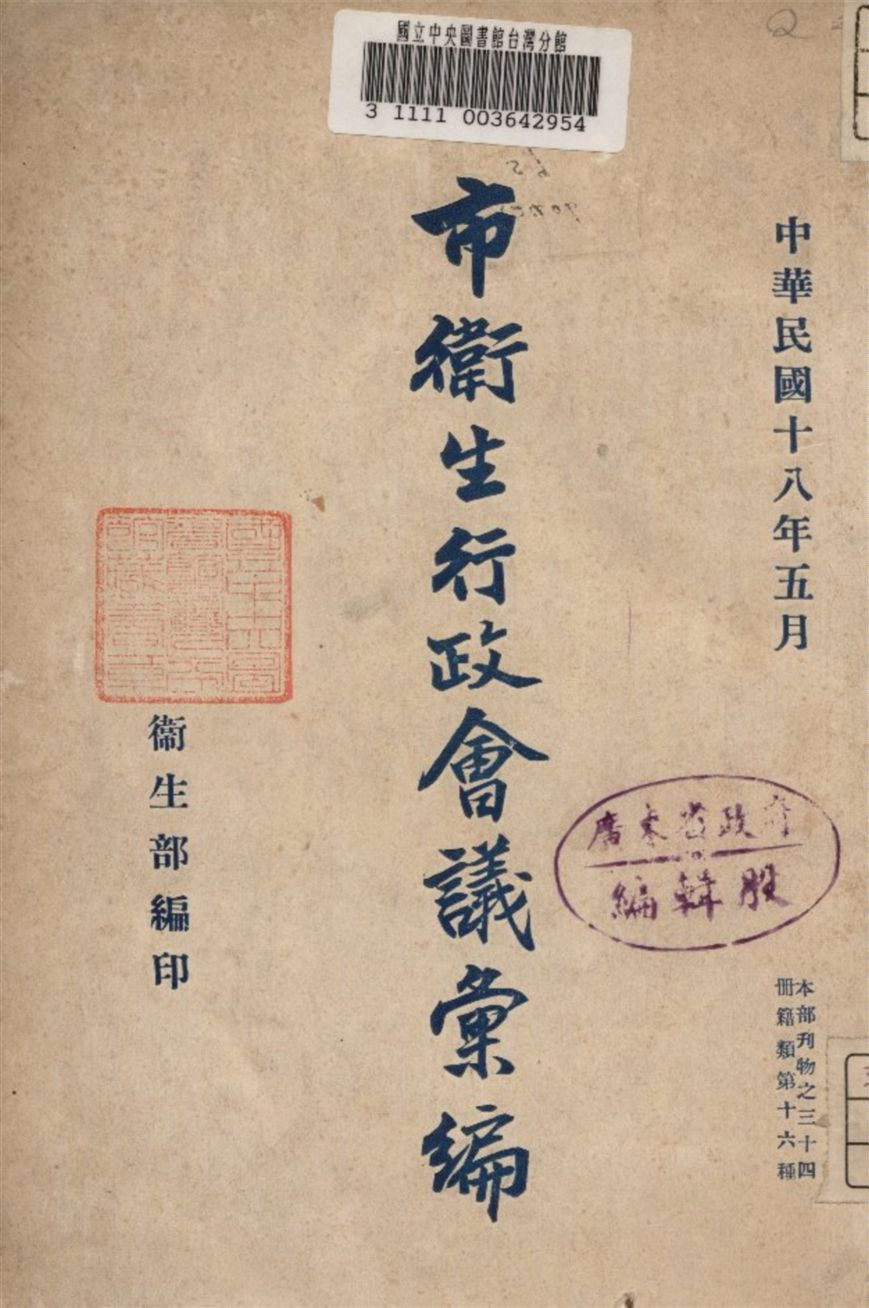 國立中央圖書館台灣分館
3 1111 003642954
中華民國十八年五月
本部刊物之三十四
冊籍類第十六種
市衞生行政會議彙編
廣東省政府
編輯股
衞生部編印